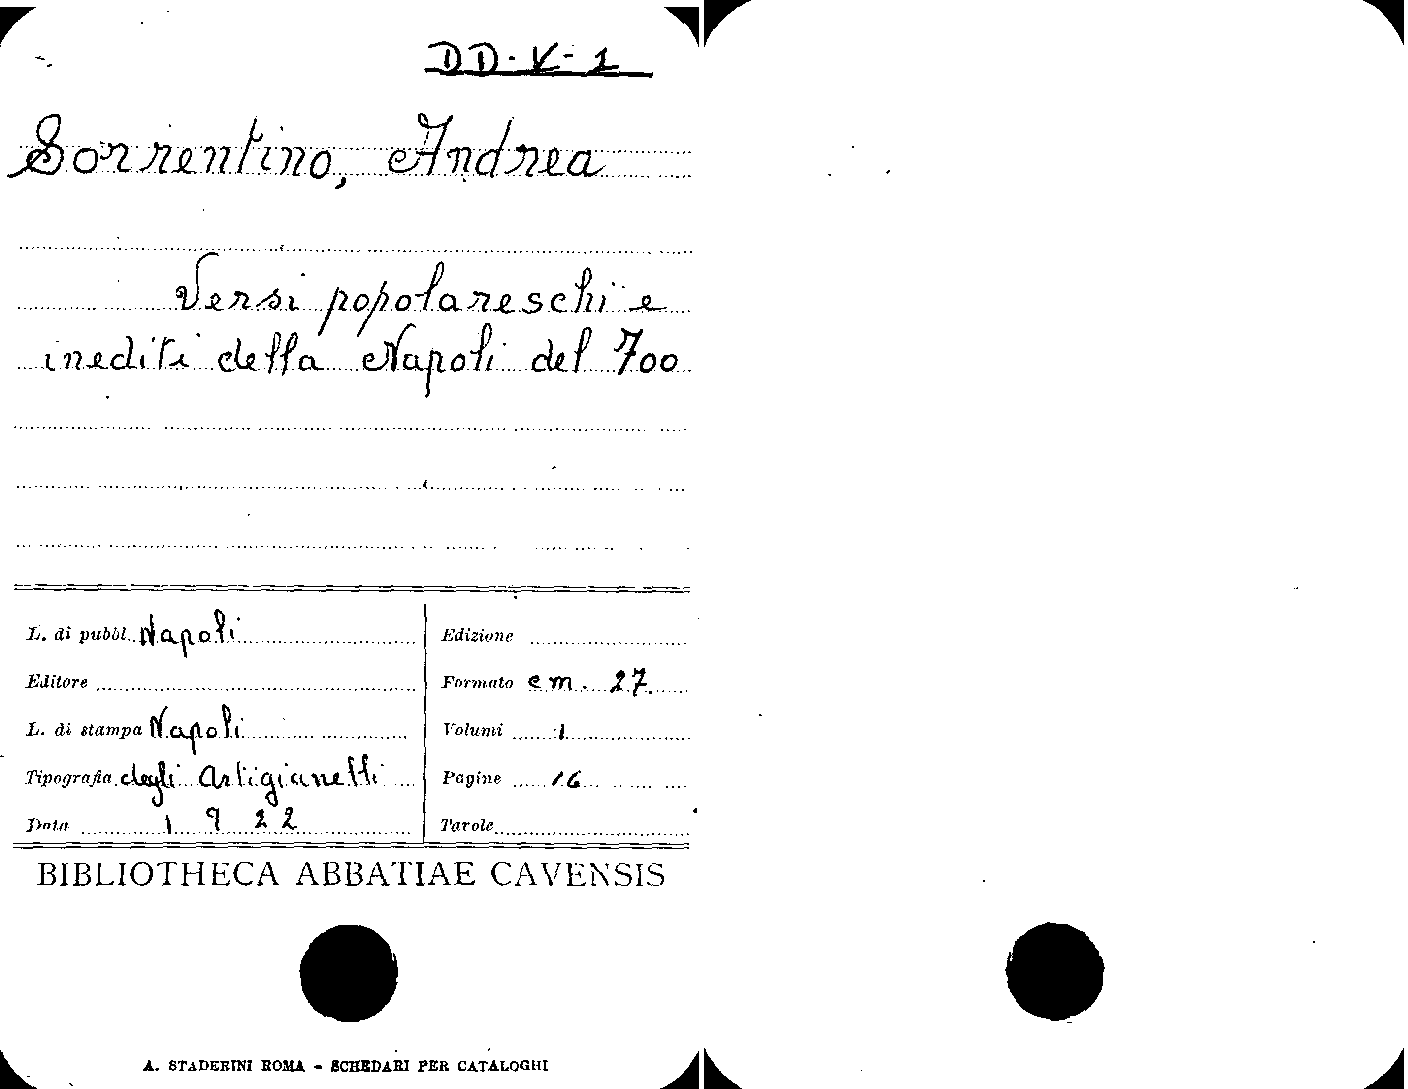 DD-V-1
Sorrentino, Andrea
Versi popolareschi e
inediti della Napoli del 700
L. di pubbl. Napoli
Editore
L. di stampa Napoli
Tipografia degli Artigianelli
Data 1922
Edizione
Formato cm. 27
Volumi 1
Pagine 16
Tarole
BIBLIOTHECA ABBATIAE CAVENSIS
A. STADERINI ROMA - SCHEDARI PER CATALOGHI